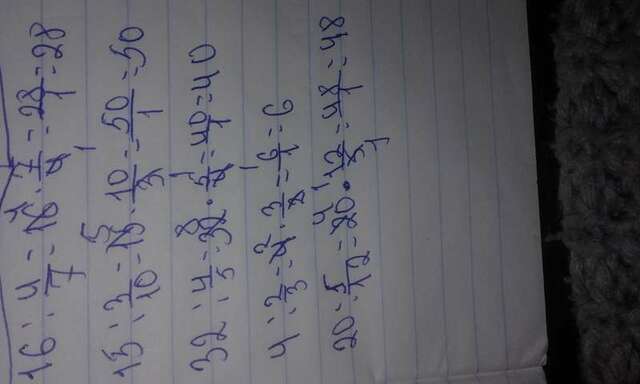 16 : 4/7 = 16 · 7/4 = 28/1 = 28
15 : 3/10 = 15 · 10/3 = 50/1 = 50
32 : 4/5 = 32 · 5/4 = 40/1 = 40
4 : 2/3 = 4 · 3/2 = 6/1 = 6
20 : 5/12 = 20 · 12/5 = 48/1 = 48